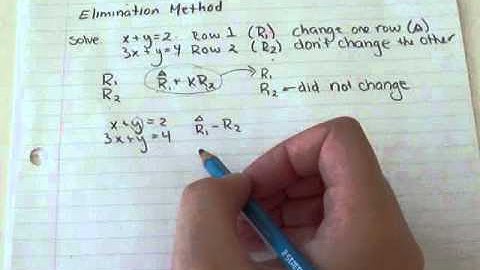 Elimination Method
Solve x+y=2 Row 1 (R₁) change one row (Δ)
3x+y=4 Row 2 (R₂) don't change the other
R₁ Δ R₁ + KR₂ → R₁
R₂ R₂ – did not change
x+y=2 Δ R₁ - R₂
3x+y=4